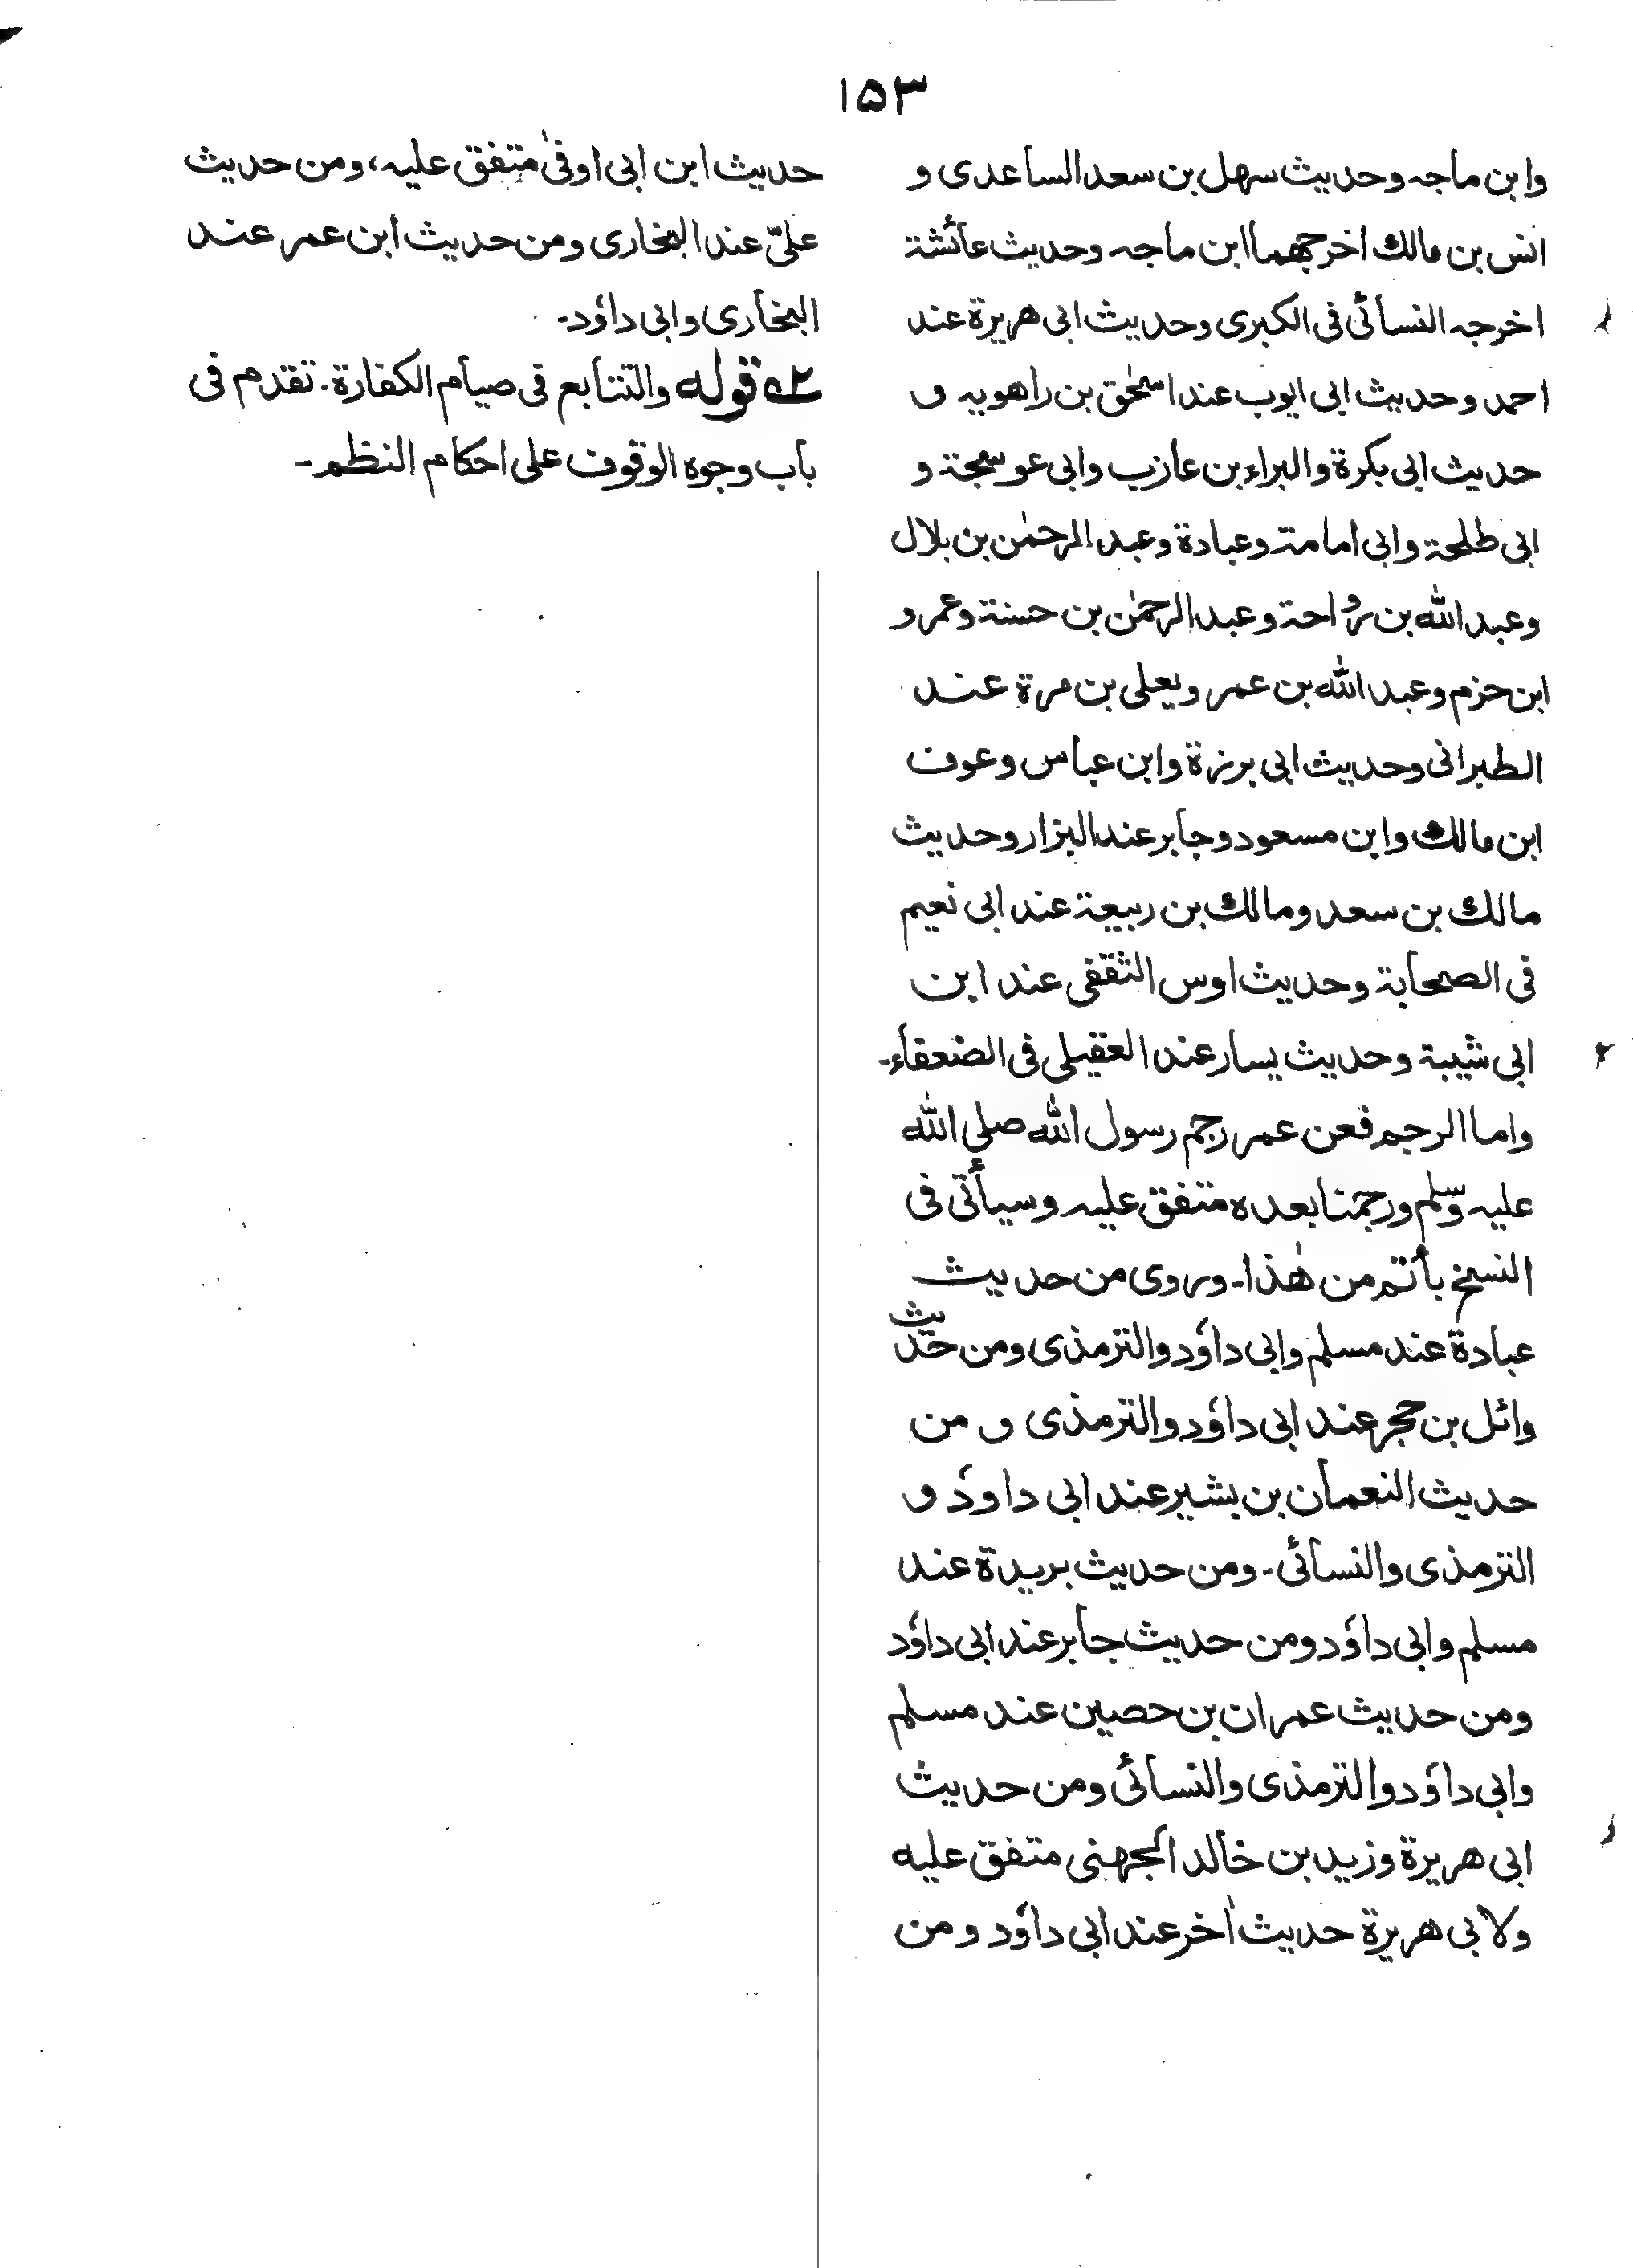 ١٥٣
وابن ماجه وحديث سهل بن سعد الساعدى و
انس بن مالك اخرجهما ابن ماجه وحديث عائشة
اخرجه النسائى فى الكبرى وحديث ابى هريرة عند
احمد وحديث ابى ايوب عند اسحٰق بن راهويه و
حديث ابى بكرة والبراء بن عازب وابى عوسجة و
ابى طلحة وابى امامة وعبادة وعبد الرحمٰن بن بلال
وعبد الله بن رواحة وعبد الرحمٰن بن حسنة وعمرو
ابن حزم وعبد الله بن عمر ويعلى بن مرة عند
الطبرانى وحديث ابى برزة وابن عباس وعوف
ابن مالك وابن مسعود وجابر عند البزار وحديث
مالك بن سعد ومالك بن ربيعة عند ابى نعيم
فى الصحابة وحديث اوس الثقفى عند ابن
ابى شيبة وحديث يسار عند العقيلى فى الضعفاء۔
واما الرجم فعن عمر رجم رسول الله صلى الله
عليه وسلم ورجمنا بعده متفق عليه وسيأتى فى
النسخ بأتم من هٰذا۔ وروى من حديث
عبادة عند مسلم وابى داؤد والترمذى ومن حديث
وائل بن حجر عند ابى داؤد والترمذى و من
حديث النعمان بن بشير عند ابى داؤد و
الترمذى والنسائى۔ ومن حديث بريدة عند
مسلم وابى داؤد ومن حديث جابر عند ابى داؤد
ومن حديث عمران بن حصين عند مسلم
وابى داؤد والترمذى والنسائى ومن حديث
ابى هريرة وزيد بن خالد الجهنى متفق عليه
ولابى هريرة حديث اٰخر عند ابى داؤد ومن
حديث ابن ابى اوفىٰ متفق عليه، ومن حديث
علىّ عند البخارى ومن حديث ابن عمر عند
البخارى وابى داؤد۔
٢ے قوله والتتابع فى صيام الكفارة۔ تقدم فى
باب وجوه الوقوف على احكام النظم۔